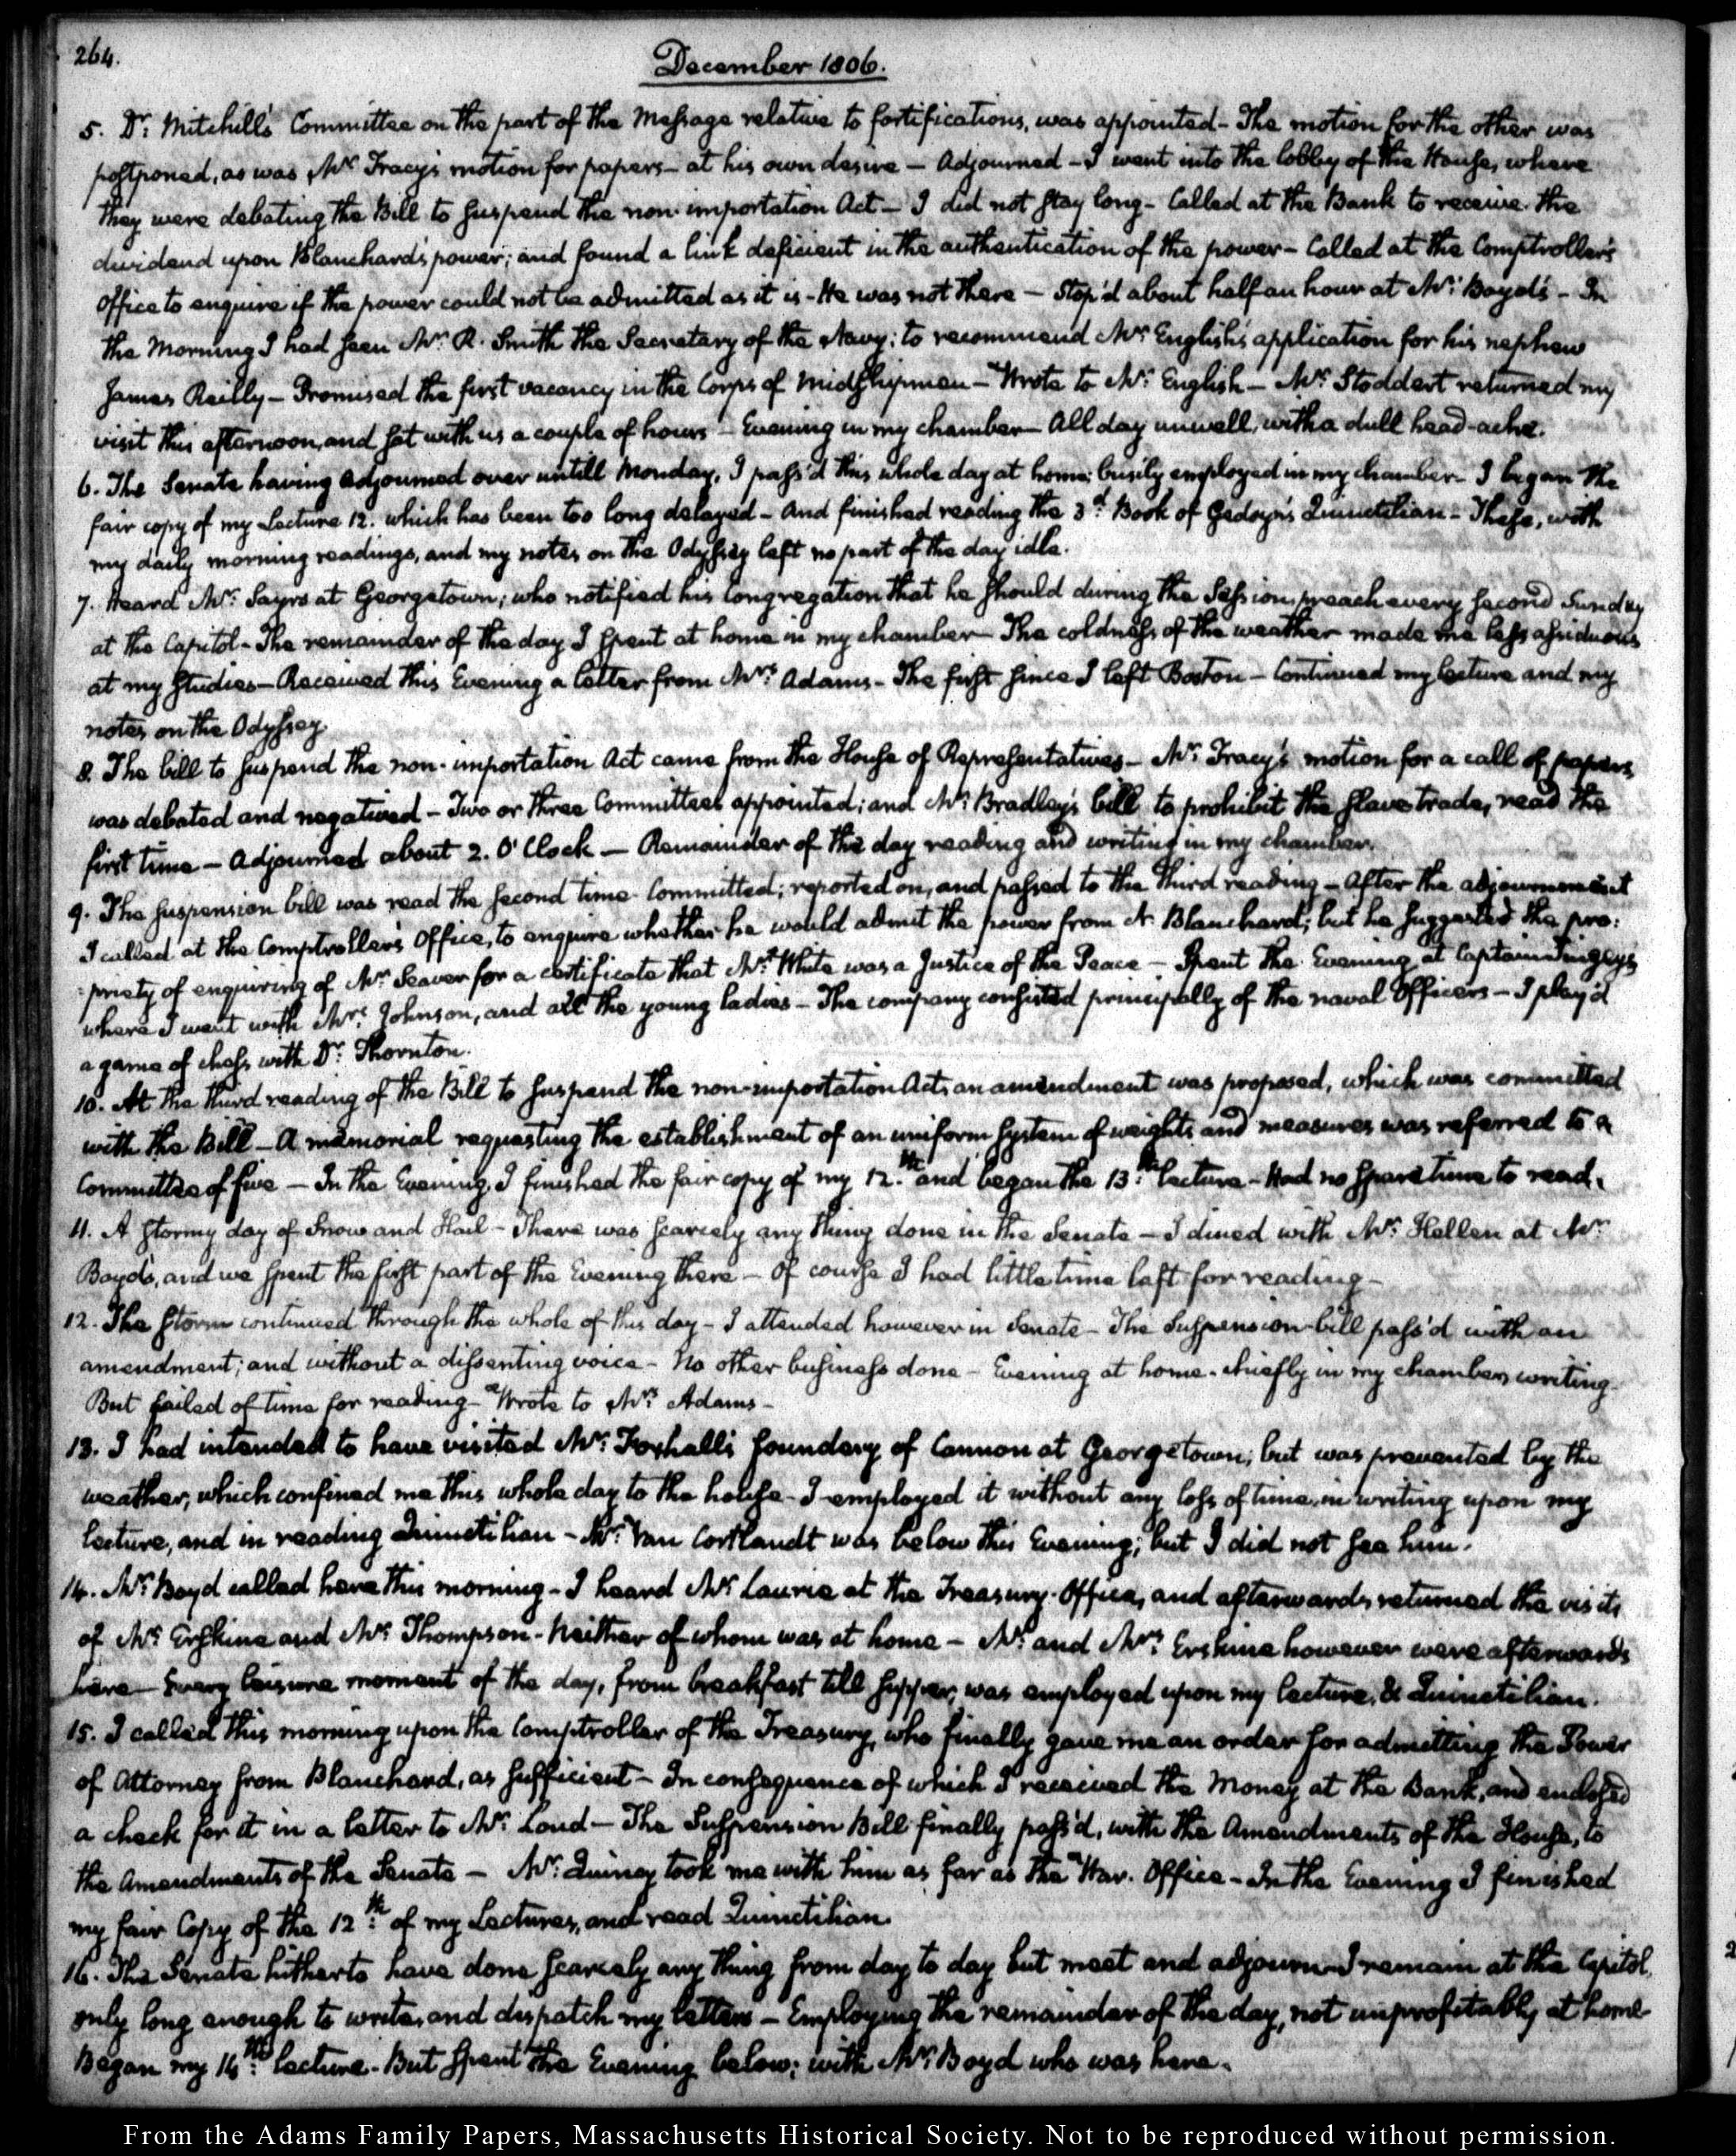 264.
December 1806.
5. Dr: Mitchill's Committee on the part of the Message relative to fortifications, was appointed - The motion for the other was
postponed, as was Mr Tracy's motion for papers - at his own desire - Adjourned - I went into the lobby of the House, where
they were debating the Bill to suspend the non-importation Act - I did not stay long - Called at the Bank to receive the
dividend upon Blanchard's power; and found a link deficient in the authentication of the power - Called at the Comptroller's
Office to enquire if the power could not be admitted as it is - He was not there - Stop'd about half an hour at Mr: Boyd's - In
the Morning I had seen Mr: R. Smith the Secretary of the Navy; to recommend Mr English's application for his nephew
James Reilly - Promised the first vacancy in the Corps of Midshipmen - Wrote to Mr: English - Mr: Stoddert returned my
visit this afternoon, and sat with us a couple of hours - Evening in my chamber - All day unwell, with a dull head-ache.
6. The Senate having adjourned over untill Monday, I pass'd this whole day at home; busily employed in my chamber - I began the
fair copy of my Lecture 12. which has been too long delayed - And finished reading the 3d: Book of Gedoyn's Quinctilian - These, with
my daily morning readings, and my notes on the Odyssey left no part of the day idle.
7. Heard Mr: Sayrs at Georgetown; who notified his Congregation that he should during the Session, preach every second Sunday
at the Capitol - The remainder of the day I spent at home in my chamber - The coldness of the weather made me less assiduous
at my studies - Received this Evening a letter from Mrs: Adams - The first since I left Boston - Continued my lecture and my
notes on the Odyssey.
8. The bill to suspend the non-importation Act came from the House of Representatives - Mr: Tracy's motion for a call of papers,
was debated and negatived - Two or three Committees appointed; and Mr: Bradley's bill to prohibit the slave trade, read the
first time - Adjourned about 2. O'Clock - Remainder of the day reading and writing in my chamber.
9. The suspension bill was read the second time. Committed; reported on, and passed to the third reading - After the adjournment
I called at the Comptroller's Office, to enquire whether he would admit the power from A. Blanchard; but he suggested the pro:
:priety of enquiring of Mr: Seaver for a certificate that Mr: White was a Justice of the Peace - Spent the Evening at Captain Tingey's
where I went with Mrs: Johnson, and all the young ladies - The company consisted principally of the naval Officers - I play'd
a game of chess with Dr: Thornton.
10. At the third reading of the Bill to suspend the non-importation Act, an amendment was proposed, which was committed
with the Bill - A memorial requesting the establishment of an uniform system of weights and measures was referred to a
Committee of five - In the Evening, I finished the fair copy of my 12.th and began the 13:th lecture - Had no spare time to read.
11. A stormy day of Snow and Hail - There was scarcely any thing done in the Senate - I dined with Mr: Hellen at Mr:
Boyd's, and we spent the first part of the Evening there - Of course I had little time left for reading -
12. The storm continued through the whole of this day - I attended however in Senate - The Suspension-bill pass'd with an
amendment; and without a dissenting voice - No other business done - Evening at home, chiefly in my chamber, writing
But failed of time for reading - Wrote to Mrs Adams -
13. I had intended to have visited Mr: Foxhall's foundery of Cannon at Georgetown; but was prevented by the
weather, which confined me this whole day to the house - I employed it without any loss of time, in writing upon my
lecture, and in reading Quinctilian - Mr: Van Cortlandt was below this Evening; but I did not see him.
14. Mr: Boyd called here this morning - I heard Mr: Laurie at the Treasury-Office, and afterwards returned the visits
of Mr: Erskine and Mr: Thompson - Neither of whom was at home - Mr: and Mrs: Erskine however were afterwards
here - Every leisure moment of the day, from breakfast till supper, was employed upon my lecture, & Quinctilian.
15. I called this morning upon the Comptroller of the Treasury, who finally gave me an order for admitting the Power
of Attorney from Blanchard, as sufficient - In consequence of which I received the Money at the Bank, and enclosed
a check for it in a letter to Mr: Loud - The Suspension Bill finally pass'd, with the Amendments of the House, to
the Amendments of the Senate - Mr: Quincy took me with him as far as the War-Office - In the Evening I finished
my fair Copy of the 12:th of my Lectures, and read Quinctilian.
16. The Senate hitherto have done scarcely any thing from day to day but meet and adjourn - I remain at the Capitol,
only long enough to write, and dispatch my letters - Employing the remainder of the day, not unprofitably at home
Began my 14:th lecture. But spent the Evening below; with Mr: Boyd who was here.
From the Adams Family Papers, Massachusetts Historical Society. Not to be reproduced without permission.